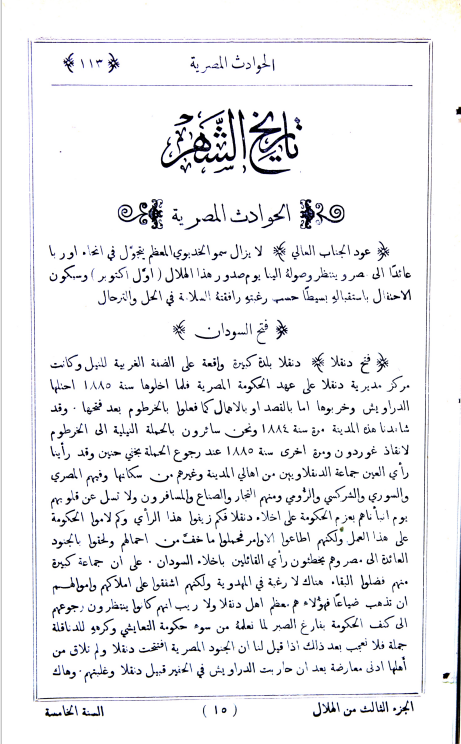 الحوادث المصرية
١١٣
تاريخ الشهر
الحوادث المصرية
عود الجناب العالي لا يزال سمو الخديوي المعظم يتجوَّل في انحاء اوربا
عائدًا الى مصر وينتظر وصولهُ الينا يوم صدور هذا الهلال ( اوَّل اكتوبر ) وسيكون
الاحتفال باستقبالهِ بسيطًا حسب رغبتهِ رافقتهُ السلامة في الحل والترحال
فتح السودان
فتح دنقلا دنقلا بلدة كبيرة واقعة على الضفة الغربية للنيل وكانت
مركز مديرية دنقلا على عهد الحكومة المصرية فلما اخلوها سنة ١٨٨٥ احتلها
الدراويش وخربوها اما بالقصد او بالاهمال كما فعلوا بالخرطوم بعد فتحها · وقد
شاهدنا هذه المدينة مرة سنة ١٨٨٤ ونحن سائرون بالحملة النيلية الى الخرطوم
لانقاذ غوردون ومرة اخرى سنة ١٨٨٥ عند رجوع الحملة بخفي حنين وقد رأينا
رأي العين جماعة الدنقلاويين من اهالي المدينة وغيرهم من سكانها وفيهم المصري
والسوري والشركسي والرومي ومنهم التجار والصناع والمسافرون ولا تسل عن قلوبهم
يوم انبأناهم بعزم الحكومة على اخلاء دنقلا فكم زيفوا هذا الرأي وكم لاموا الحكومة
على هذا العمل ولكنهم اطاعوا الاوامر فحملوا ما خفَّ من احمالهم ولحقوا بالجنود
العائدة الى مصر وهم يخطئون رأي القائلين باخلاء السودان · على ان جماعة كبيرة
منهم فضلوا البقاء هناك لا رغبة في المهدوية ولكنهم اشفقوا على املاكهم واموالهم
ان تذهب ضياعًا فهؤلاء هم معظم اهل دنقلا ولا ريب انهم كانوا ينتظرون رجوعهم
الى كنف الحكومة بفارغ الصبر لما نعلمهُ من سوء حكومة التعايشي وكرههِ للدناقلة
جملة فلا نعجب بعد ذلك اذا قيل لنا ان الجنود المصرية افتتحت دنقلا ولم تلاق من
أهلها ادنى معارضة بعد ان حاربت الدراويش في الحفير قبيل دنقلا وغلبتهم · وهاك
الجزء الثالث من الهلال
( ١٥ )
السنة الخامسة